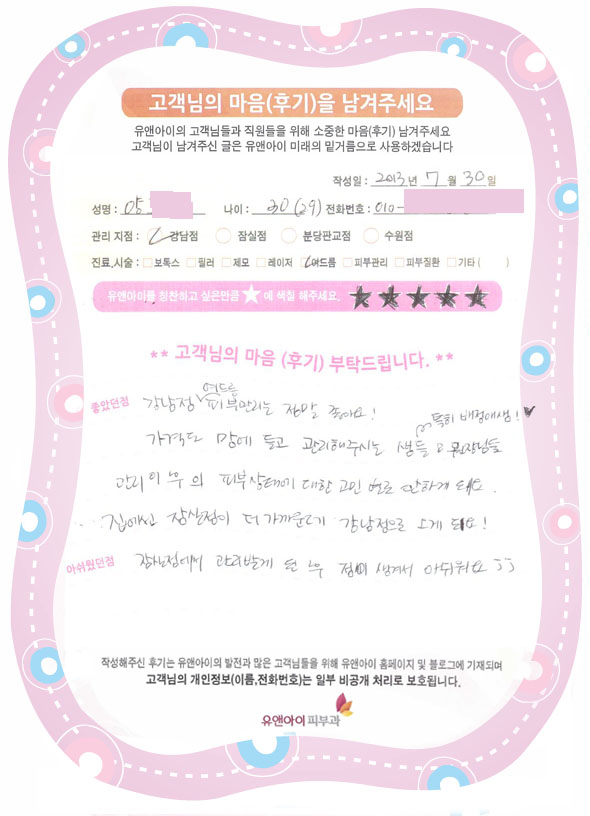 고객님의 마음(후기)을 남겨주세요
유앤아이의 고객님들과 직원들을 위해 소중한 마음(후기) 남겨주세요
고객님이 남겨주신 글은 유앤아이 미래의 밑거름으로 사용하겠습니다
작성일 : 2013년 7월 30일
성명 : 나이 : 30(29) 전화번호 : 010-
관리 지점 : 강남점 잠실점 분당판교점 수원점
진료,시술 : 보톡스 필러 제모 레이저 여드름 피부관리 피부질환 기타 ( )
유앤아이를 칭찬하고 싶은만큼 ★ 에 색칠 해주세요. ★★★★★
** 고객님의 마음 (후기) 부탁드립니다. **
여드름
좋았던점 강남점 피부관리는 정말 좋아요!
특히 배정애샘!
가격도 맘에 들고 관리해주시는 샘들 원장님들
관리 이후의 피부상태에 대한 고민 별로 안하게 돼요.
집에선 잠실점이 더 가까운데 강남점으로 오게 돼요!
아쉬웠던점 잠실점에서 관리받게 된 후 점이 생겨서 아쉬워요 ㅠㅠ
작성해주신 후기는 유앤아이의 발전과 많은 고객님들을 위해 유앤아이 홈페이지 및 블로그에 기재되며
고객님의 개인정보(이름,전화번호)는 일부 비공개 처리로 보호됩니다.
유앤아이피부과